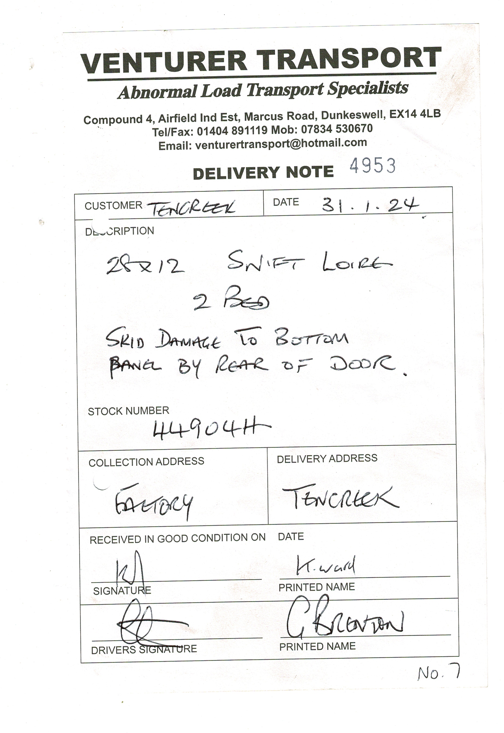 VENTURER TRANSPORT
Abnormal Load Transport Specialists
Compound 4, Airfield Ind Est, Marcus Road, Dunkeswell, EX14 4LB
Tel/Fax: 01404 891119 Mob: 07834 530670
Email: venturertransport@hotmail.com
DELIVERY NOTE 4953
CUSTOMER TENCREEK DATE 31.1.24
DESCRIPTION
28x12 SWIFT LOIRE
2 BED
SKID DAMAGE TO BOTTOM
PANEL BY REAR OF DOOR.
STOCK NUMBER
44904H
COLLECTION ADDRESS DELIVERY ADDRESS
FACTORY TENCREEK
RECEIVED IN GOOD CONDITION ON DATE
K.ward
SIGNATURE PRINTED NAME
G BRENTON
DRIVERS SIGNATURE PRINTED NAME
No. 7